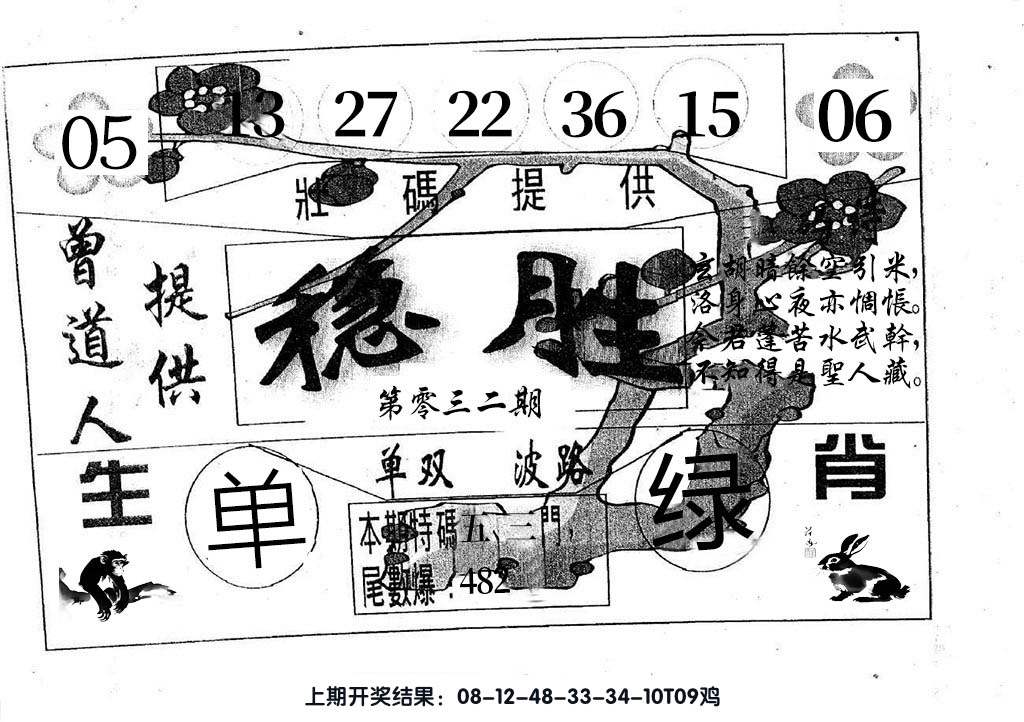 05 13 27 22 36 15 06
壯碼提供
曾道人
提供
稳胜
第零三二期
玄胡暗餘空引米,
洛身心夜亦惆悵。
余若蓬苦水武幹,
不知得是聖人藏。
单双 波路
生肖
单
绿
本期特碼五、三門,
尾數爆:482
上期开奖结果：08-12-48-33-34-10T09鸡